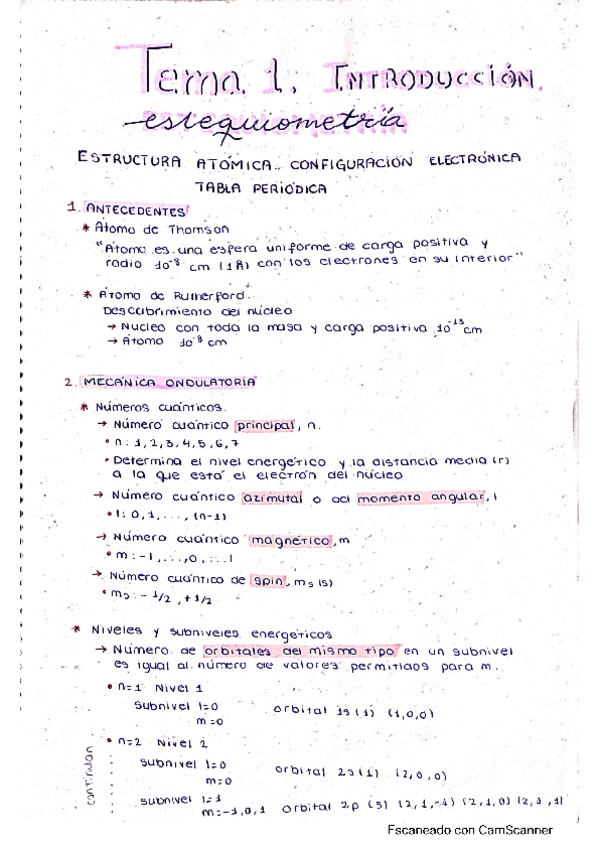 Tema 1. INTRODUCCIÓN.
estequiometría
ESTRUCTURA ATÓMICA. CONFIGURACIÓN ELECTRÓNICA
TABLA PERIÓDICA
1. ANTECEDENTES
* Átomo de Thomson
"Átomo es una esfera uniforme de carga positiva y
radio 10⁻⁸ cm (1Å) con los electrones en su interior"
* Átomo de Rutherford.
Descubrimiento del núcleo
→ Núcleo con toda la masa y carga positiva 10⁻¹³ cm
→ Átomo 10⁻⁸ cm
2. MECÁNICA ONDULATORIA
* Números cuánticos.
→ Número cuántico principal, n.
• n: 1, 2, 3, 4, 5, 6, 7
• Determina el nivel energético y la distancia media (r)
a la que está el electrón del núcleo
→ Número cuántico azimutal o del momento angular, l
• l: 0, 1, ..., (n-1)
→ Número cuántico magnético, m
• m: -l, ..., 0, ... l
→ Número cuántico de spin, ms (s)
• ms: - 1/2, + 1/2
* Niveles y subniveles energéticos
→ Número de orbitales del mismo tipo en un subnivel
es igual al número de valores permitidos para m.
• n=1 Nivel 1
Subnivel l=0 orbital 1s (1) (1,0,0)
m=0
• n=2 Nivel 2
subnivel l=0 orbital 2s (1) (2,0,0)
m=0
subnivel l=1
m=-1,0,1 orbital 2p (3) (2,1,-1) (2,1,0) (2,1,1)
continúan
Escaneado con CamScanner